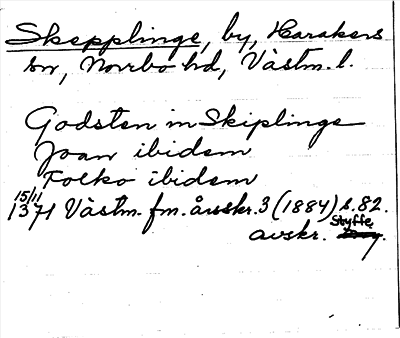 Skepplinge, by, Harakers
sn, Norrbo hd, Västm. l.
Godsten in Skiplinge
Joan ibidem
Folko ibidem
15/11
1371 Västm. fm. årsskr. 3 (1884) s. 82.
avskr. Styffe.